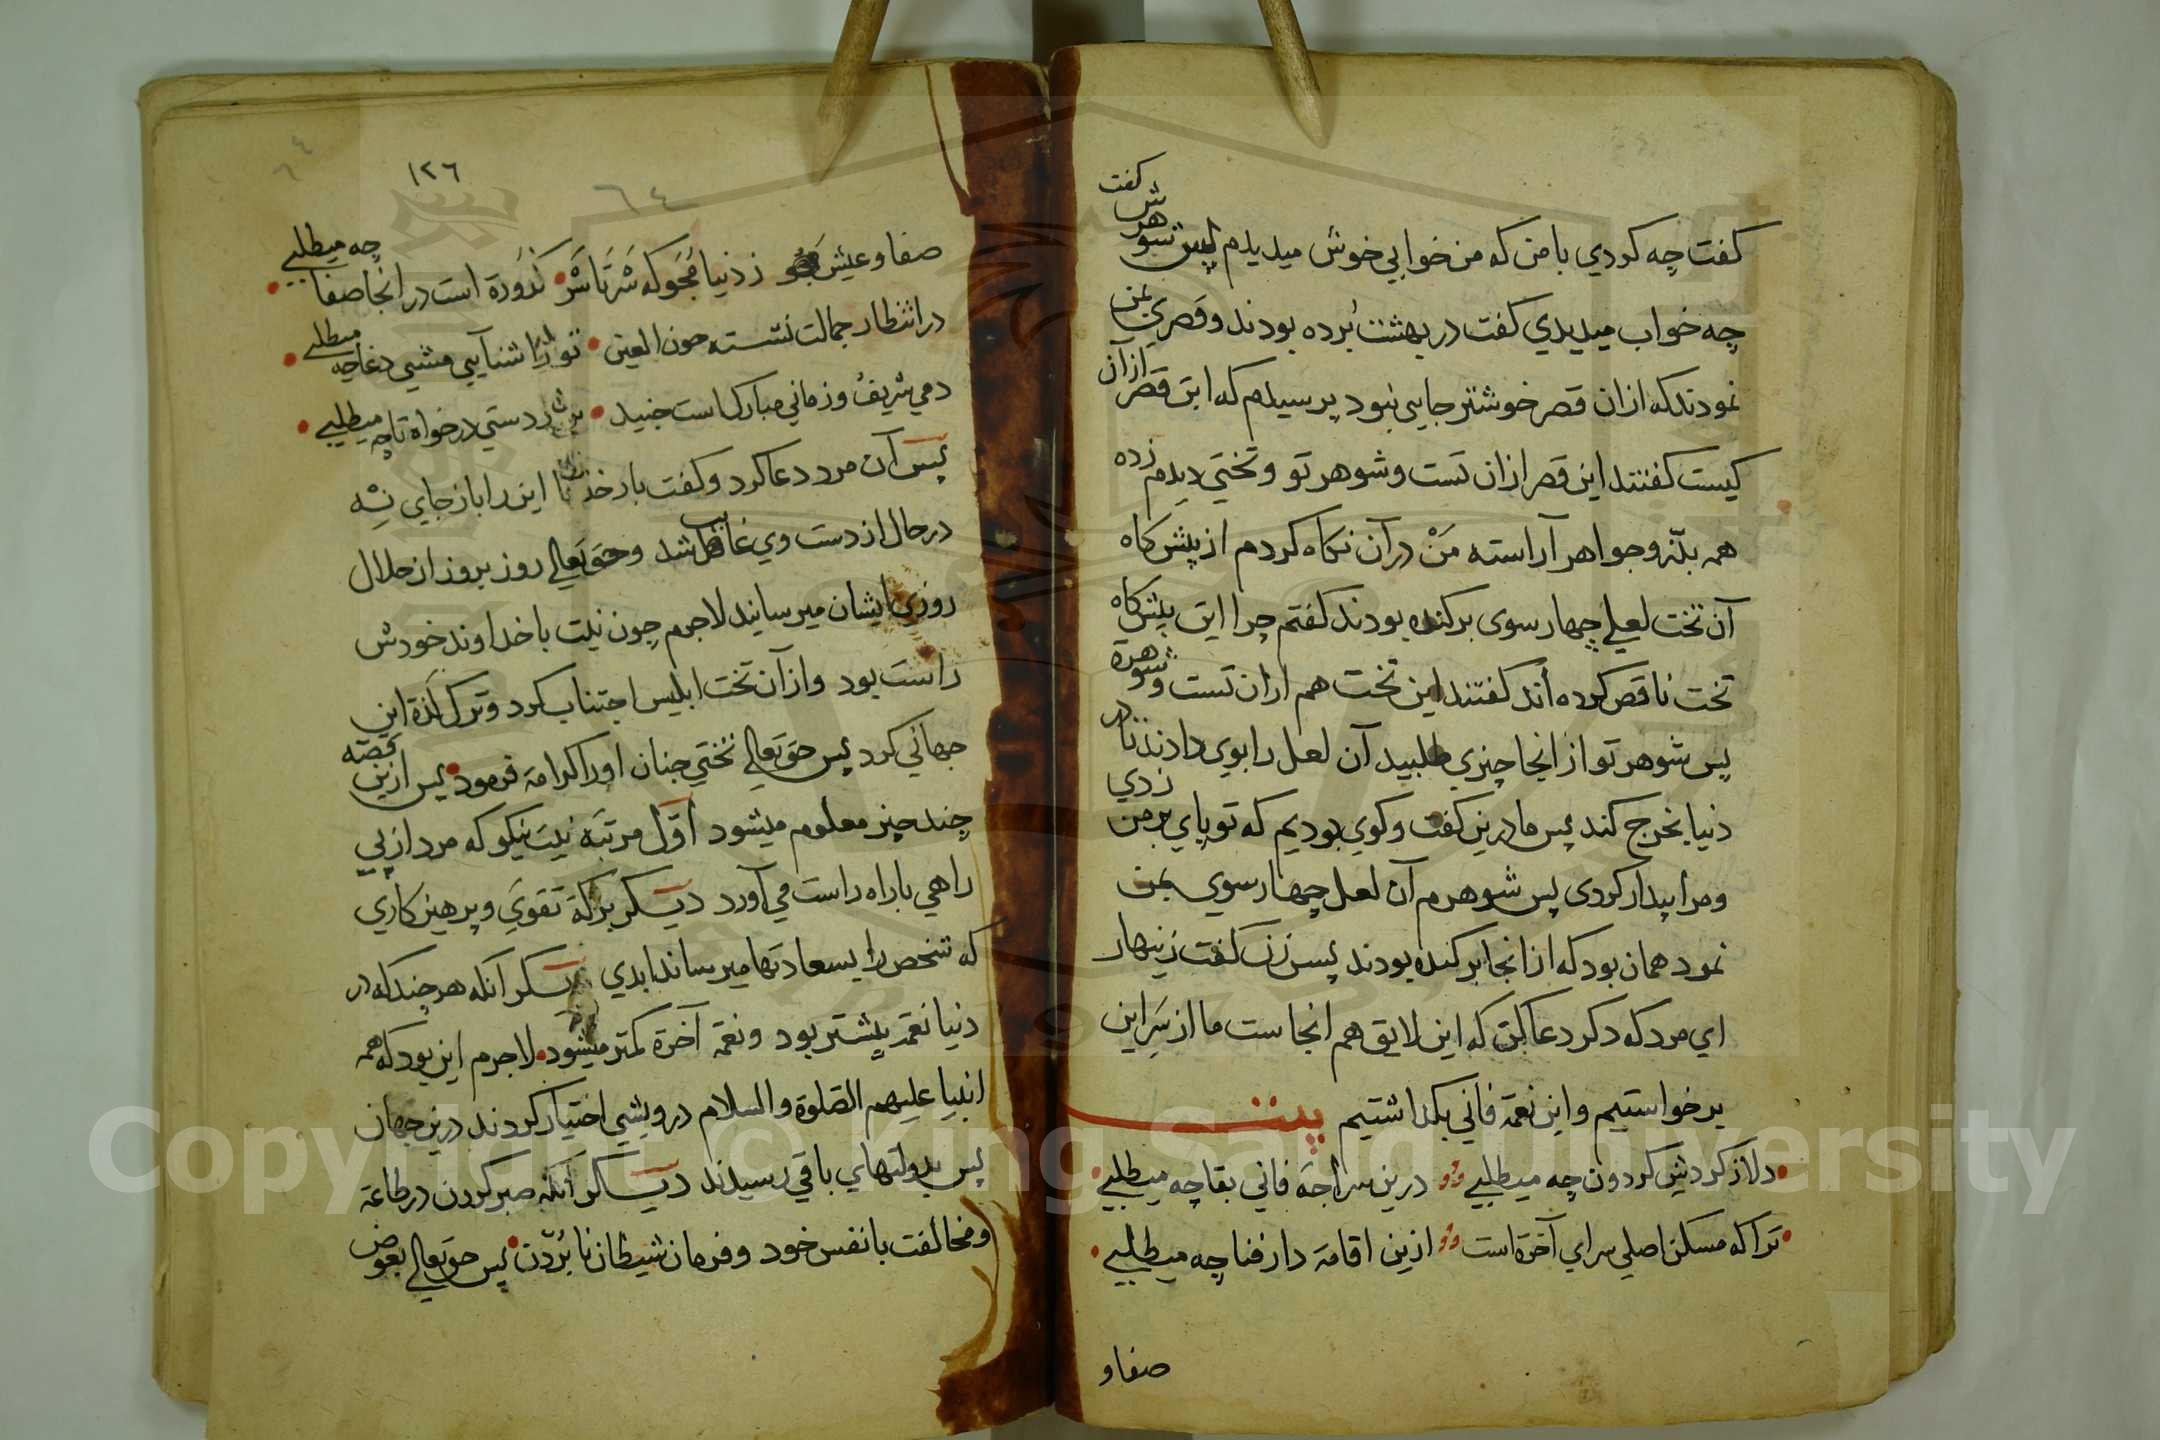 كفت چه كردي با من كه من خوابي خوش ميديدم پس شوهرش كفت
چه خواب ميديدي كفت در بهشت بُرده بودند و قصري بمن
نمودند كه ازان قصر خوشتر جايي نبود پرسيدم كه اين قصر ازان
كيست كفتند اين قصر ازان تست و شوهر تو و تختي ديدم زده
همه بدُر و جواهر آراسته مَنْ در آن نكاه كردم از پيش كاه
آن تخت لعلي چهار سوى بر كنده بودند كفتم چرا اين پيش كاه
تخت ناقص كرده اند كفتند اين تخت هم ازان تست و شوهرة
پس شوهر تو از اينجا چيزي طلبيد آن لعل را بوي دادند تا در
دنيا بخرج كند پس ما درين كفت و كوي بوديم كه تو پاي بر من زدي
و مرا بيدار كردى پس شوهرم آن لعل چهار سوي بمن
نمود همان بود كه از انجا بر كنده بودند پس زن كفت زنهار
اي مرد كه دكر دعا بكن كه اين لايق هم انجاست ما از سَرِ اين
بر خواستيم و اين نعمة فاني بكذاشتيم بيت
دلا ز كردش كردون چه ميطلبي درين سراجهٔ فاني بقا چه ميطلبي
ترا كه مسكن اصلي سراي آخرة است ازين اقامة دار فنا چه ميطلبي
صفا و
١٢٦
٦٤
صفا و عيش مجو ز دنيا مَجَو كه سَرْتاسَرْ كدُورة است در انجا صفا چه ميطلبي
در انتظار جمالت نشسته حون العين تو باشنايي مشتي دغا چه ميطلبي
دمي شريفُ و زماني مباركست جنيد بر آر دستي در خواه تا چه ميطلبي
پس آن مرد دعا كرد و كفت بار خدايا اين را باز جاي نِه
در حال از دست وي غايب شد و حق تعالي روز بروز از حلال
روزي ايشان ميرسانيد لاجرم چون نيت با خداوند خودش
راست بود و از آن تخت ابليس اجتناب كرد و ترك لذة اين
جهاني كرد پس حق تعالي تختي جنان او را كرامة فرمود پس ازين قصّه
چند چيز معلوم ميشود اوّل مرتبَه نيت نيكو كه مرد از بي
راهي با راه راست مي آورد ديكر بركة تقوي و پرهيز كاري
كه شخص را بسعادتها ميرساند ابدي ديكر آنكه هر چند كه در
دنيا نعمة بيشتر بود و نعمة آخرة كمتر ميشود لاجرم اين بود كه همه
انبيا عليهم الصّلوة والسلام درويشي اختيار كردند درين جهان
پس بدولتهاي باقي رسيدند ديكر آنكه صبر كردن در طاعة
و مخالفت با نفس خود و فرمان شيطان نا بُردَن پس حق تعالي بعوض
Copyright © King Saud University